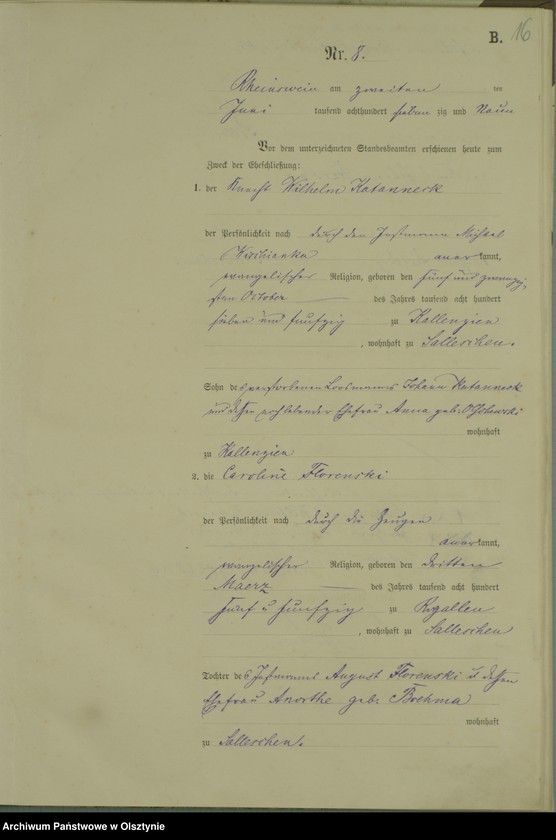 B. 16
Nr. 8.
Rheinswein am zweiten ten
Juni tausend achthundert sieben zig und Neun
Vor dem unterzeichneten Standesbeamten erschienen heute zum
Zweck der Eheschließung:
1. der Knecht Wilhelm Katanneck
der Persönlichkeit nach durch den Instmann Michael
aner kannt,
evangelischer Religion, geboren den fünf und zwanzig
sten October des Jahres tausend acht hundert
sieben und fünfzig zu Kallenzien
, wohnhaft zu Salleschen.
Sohn des verstorbenen Loosmanns Johann Katanneck
und dessen noch lebender Ehefrau Anna geb.
wohnhaft
zu Kallenzien
2. die Caroline Florenski
der Persönlichkeit nach durch die Zeugen
aner kannt,
evangelischer Religion, geboren den dritten
Maerz des Jahres tausend acht hundert
fünf u fünfzig zu Rogallen
, wohnhaft zu Salleschen
Tochter des Instmanns August Florenski u dessen
Ehefrau Anorthe geb: Boehma
wohnhaft
zu Salleschen.
Archiwum Państwowe w Olsztynie